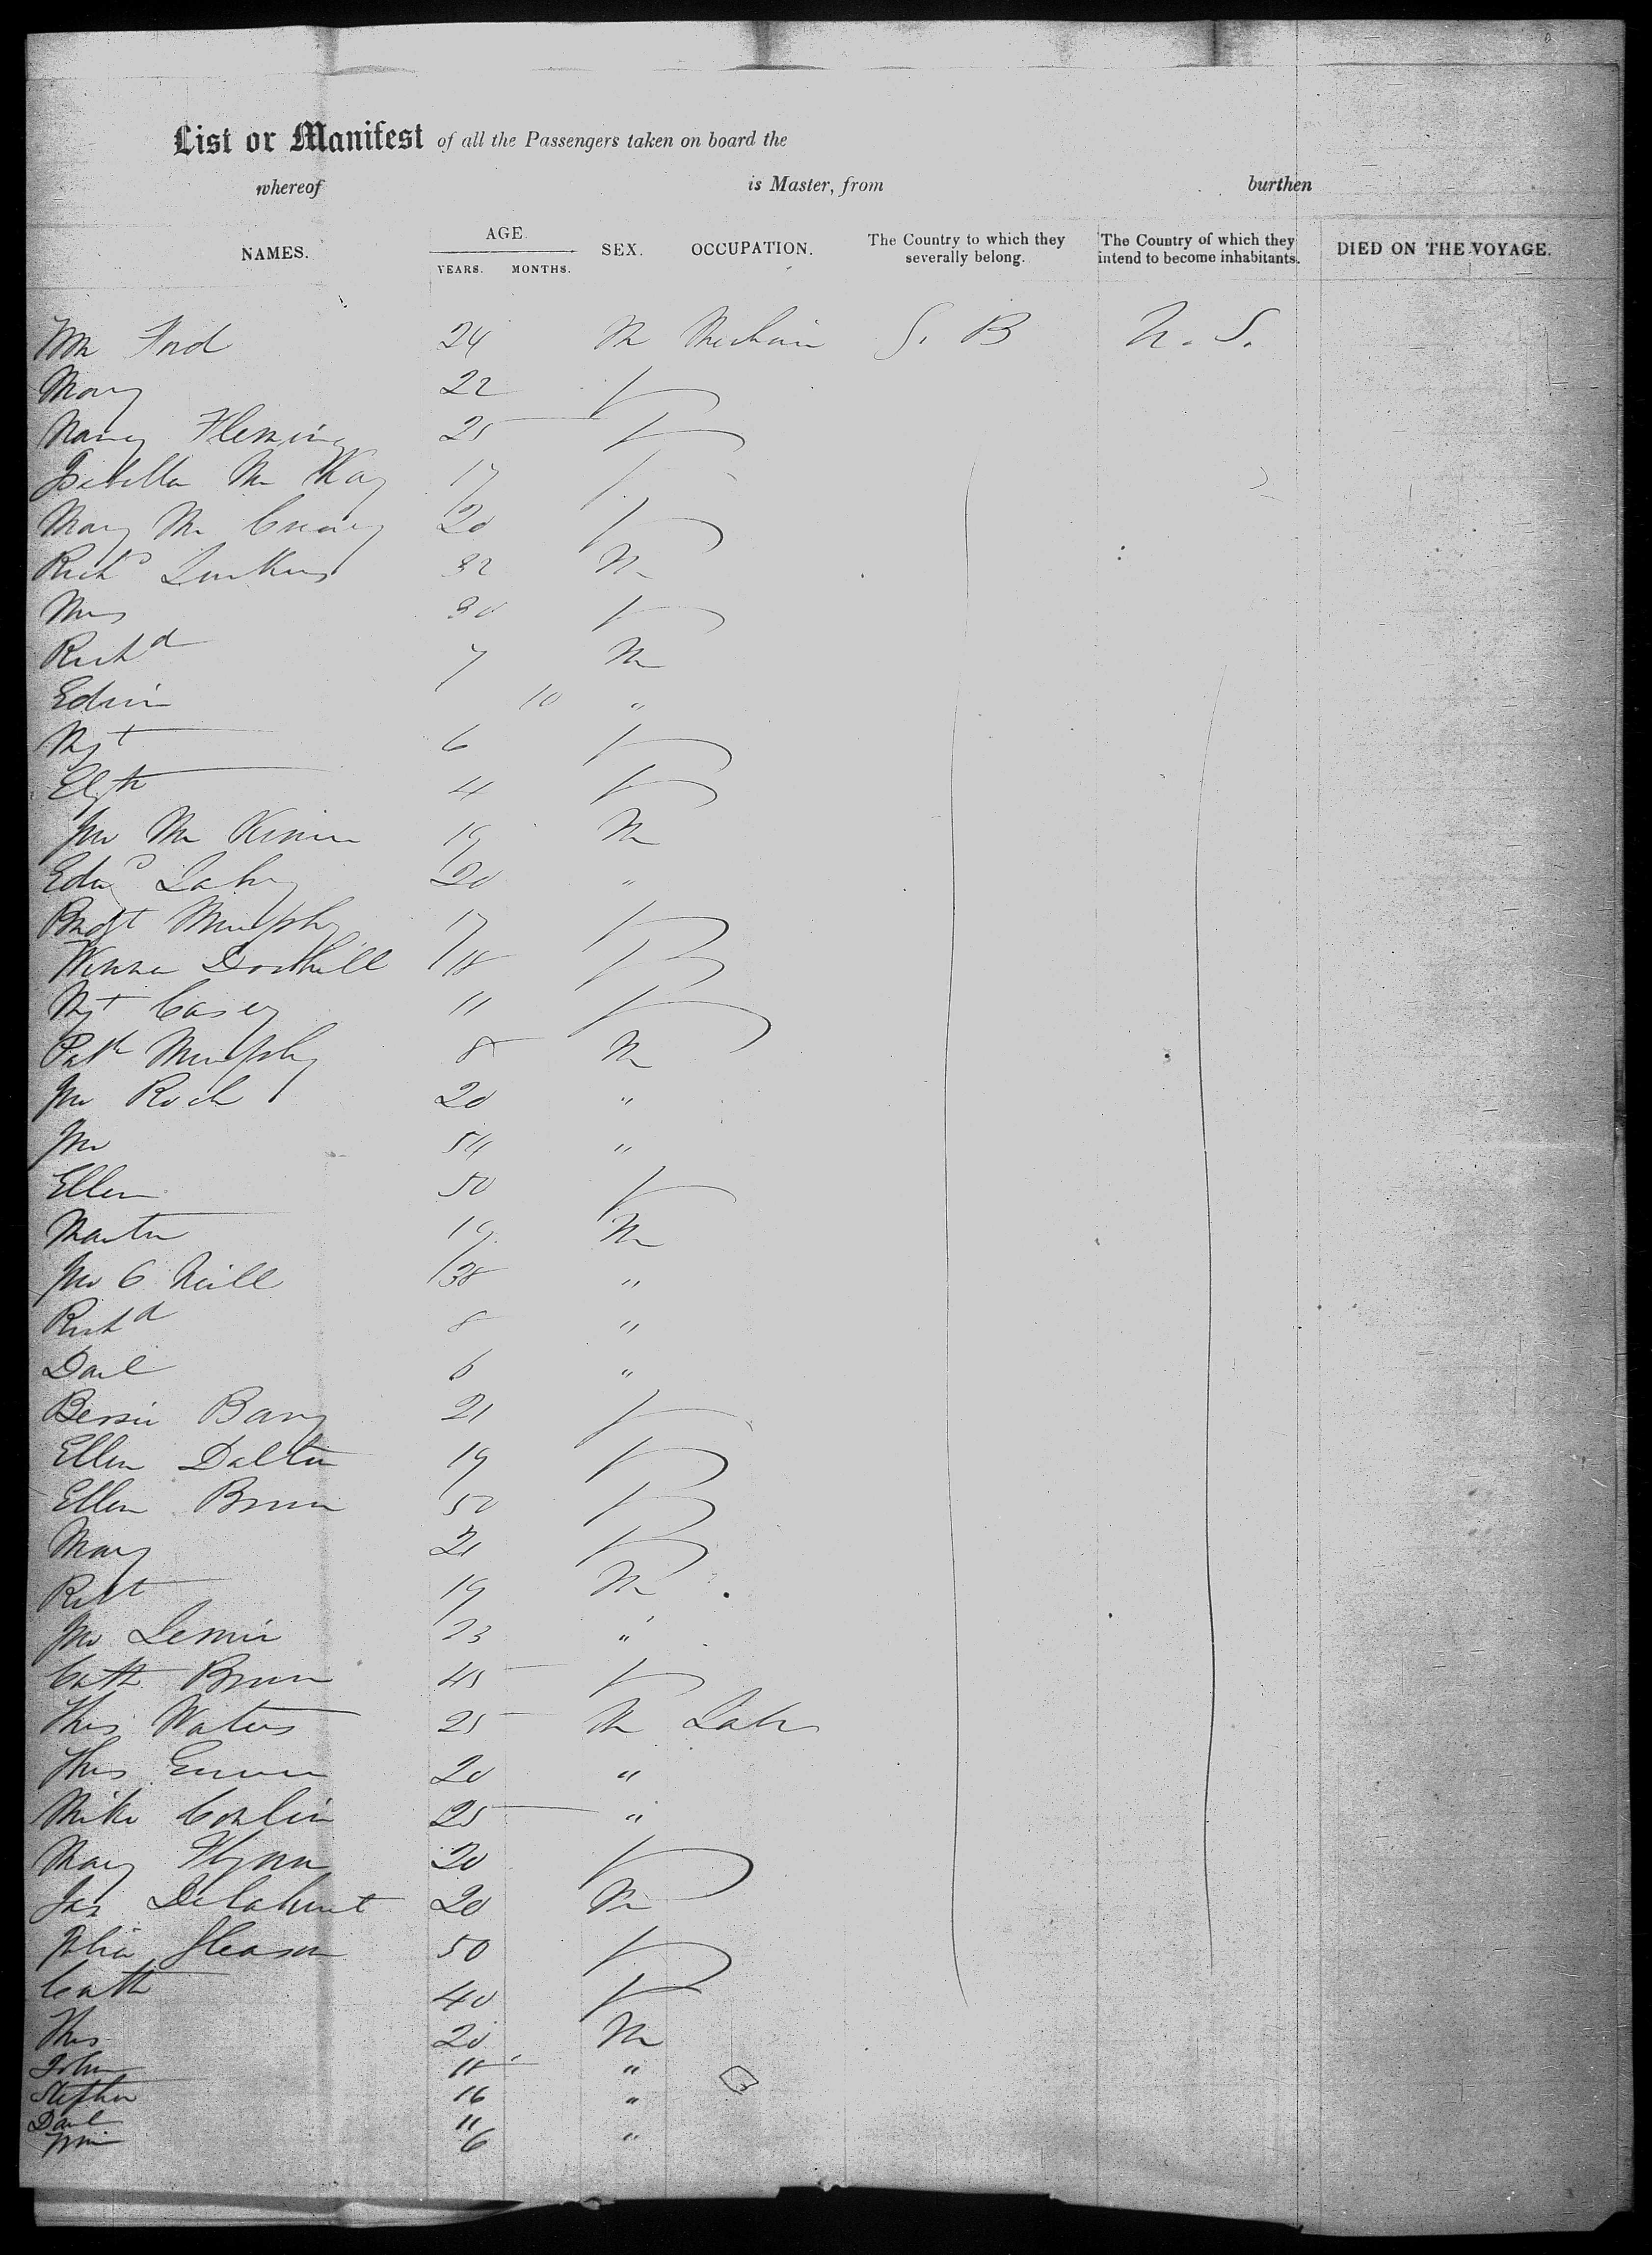 List or Manifest of all the Passengers taken on board the
whereof is Master, from burthen
NAMES. AGE. SEX. OCCUPATION. The Country to which they severally belong. The Country of which they intend to become inhabitants. DIED ON THE VOYAGE.
YEARS. MONTHS.
Wm Ford 24 M G. B U. S.
Mary 22 F
Nancy Fleming 25 F
Isabella Mc Kay 17 F
Mary Mc 20 F
Richd 32 M
Mrs 30 F
Richd 7 M
Edwin 10 "
Mgt 6 F
Elzth 4 F
Jno Mc 19 M
Edwd Lahy 20 "
Bridgt Murphy 17 F
18 F
Mgt Casey 11 F
Patk Murphy 8 M
Jno Roch 20 "
Jno 54 "
Ellen 50 F
Martin 19 M
Jno O Neill 38 "
Richd 8 "
Danl 6 "
Bessie Barry 21 F
Ellen Dalton 19 F
Ellen Brown 50 F
Mary 21 F
Robt 19 M
Jno 23 "
Cath Brown 45 F
Thos Waters 25 M Labr
Thos 20 "
Mike Conlin 25 "
Mary Flynn 20 F
Jas Delahunt 20 M
Julia Gleason 50 F
Cath 40 F
Thos 20 M
John 18 "
Stephen 16 "
Danl 11
Wm 6 "